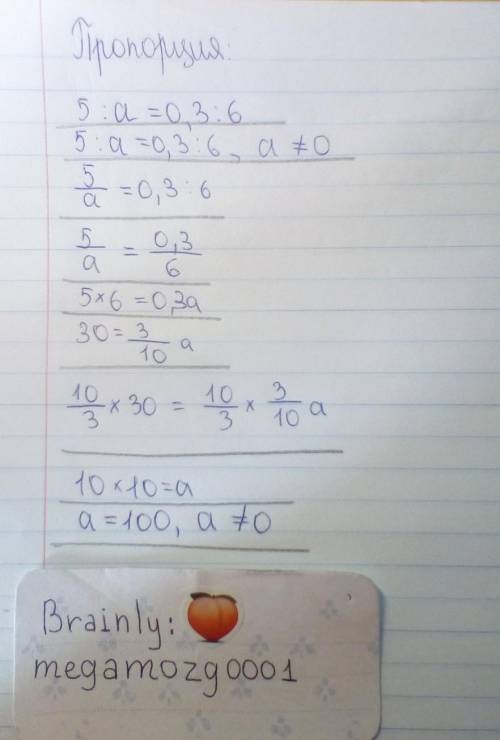 Пропорция:
5 : a = 0,3 : 6
5 : a = 0,3 : 6, a ≠ 0
5/a = 0,3 : 6
5/a = 0,3/6
5 × 6 = 0,3a
30 = 3/10 a
10/3 × 30 = 10/3 × 3/10 a
10 × 10 = a
a = 100, a ≠ 0
Brainly:
megamozg0001